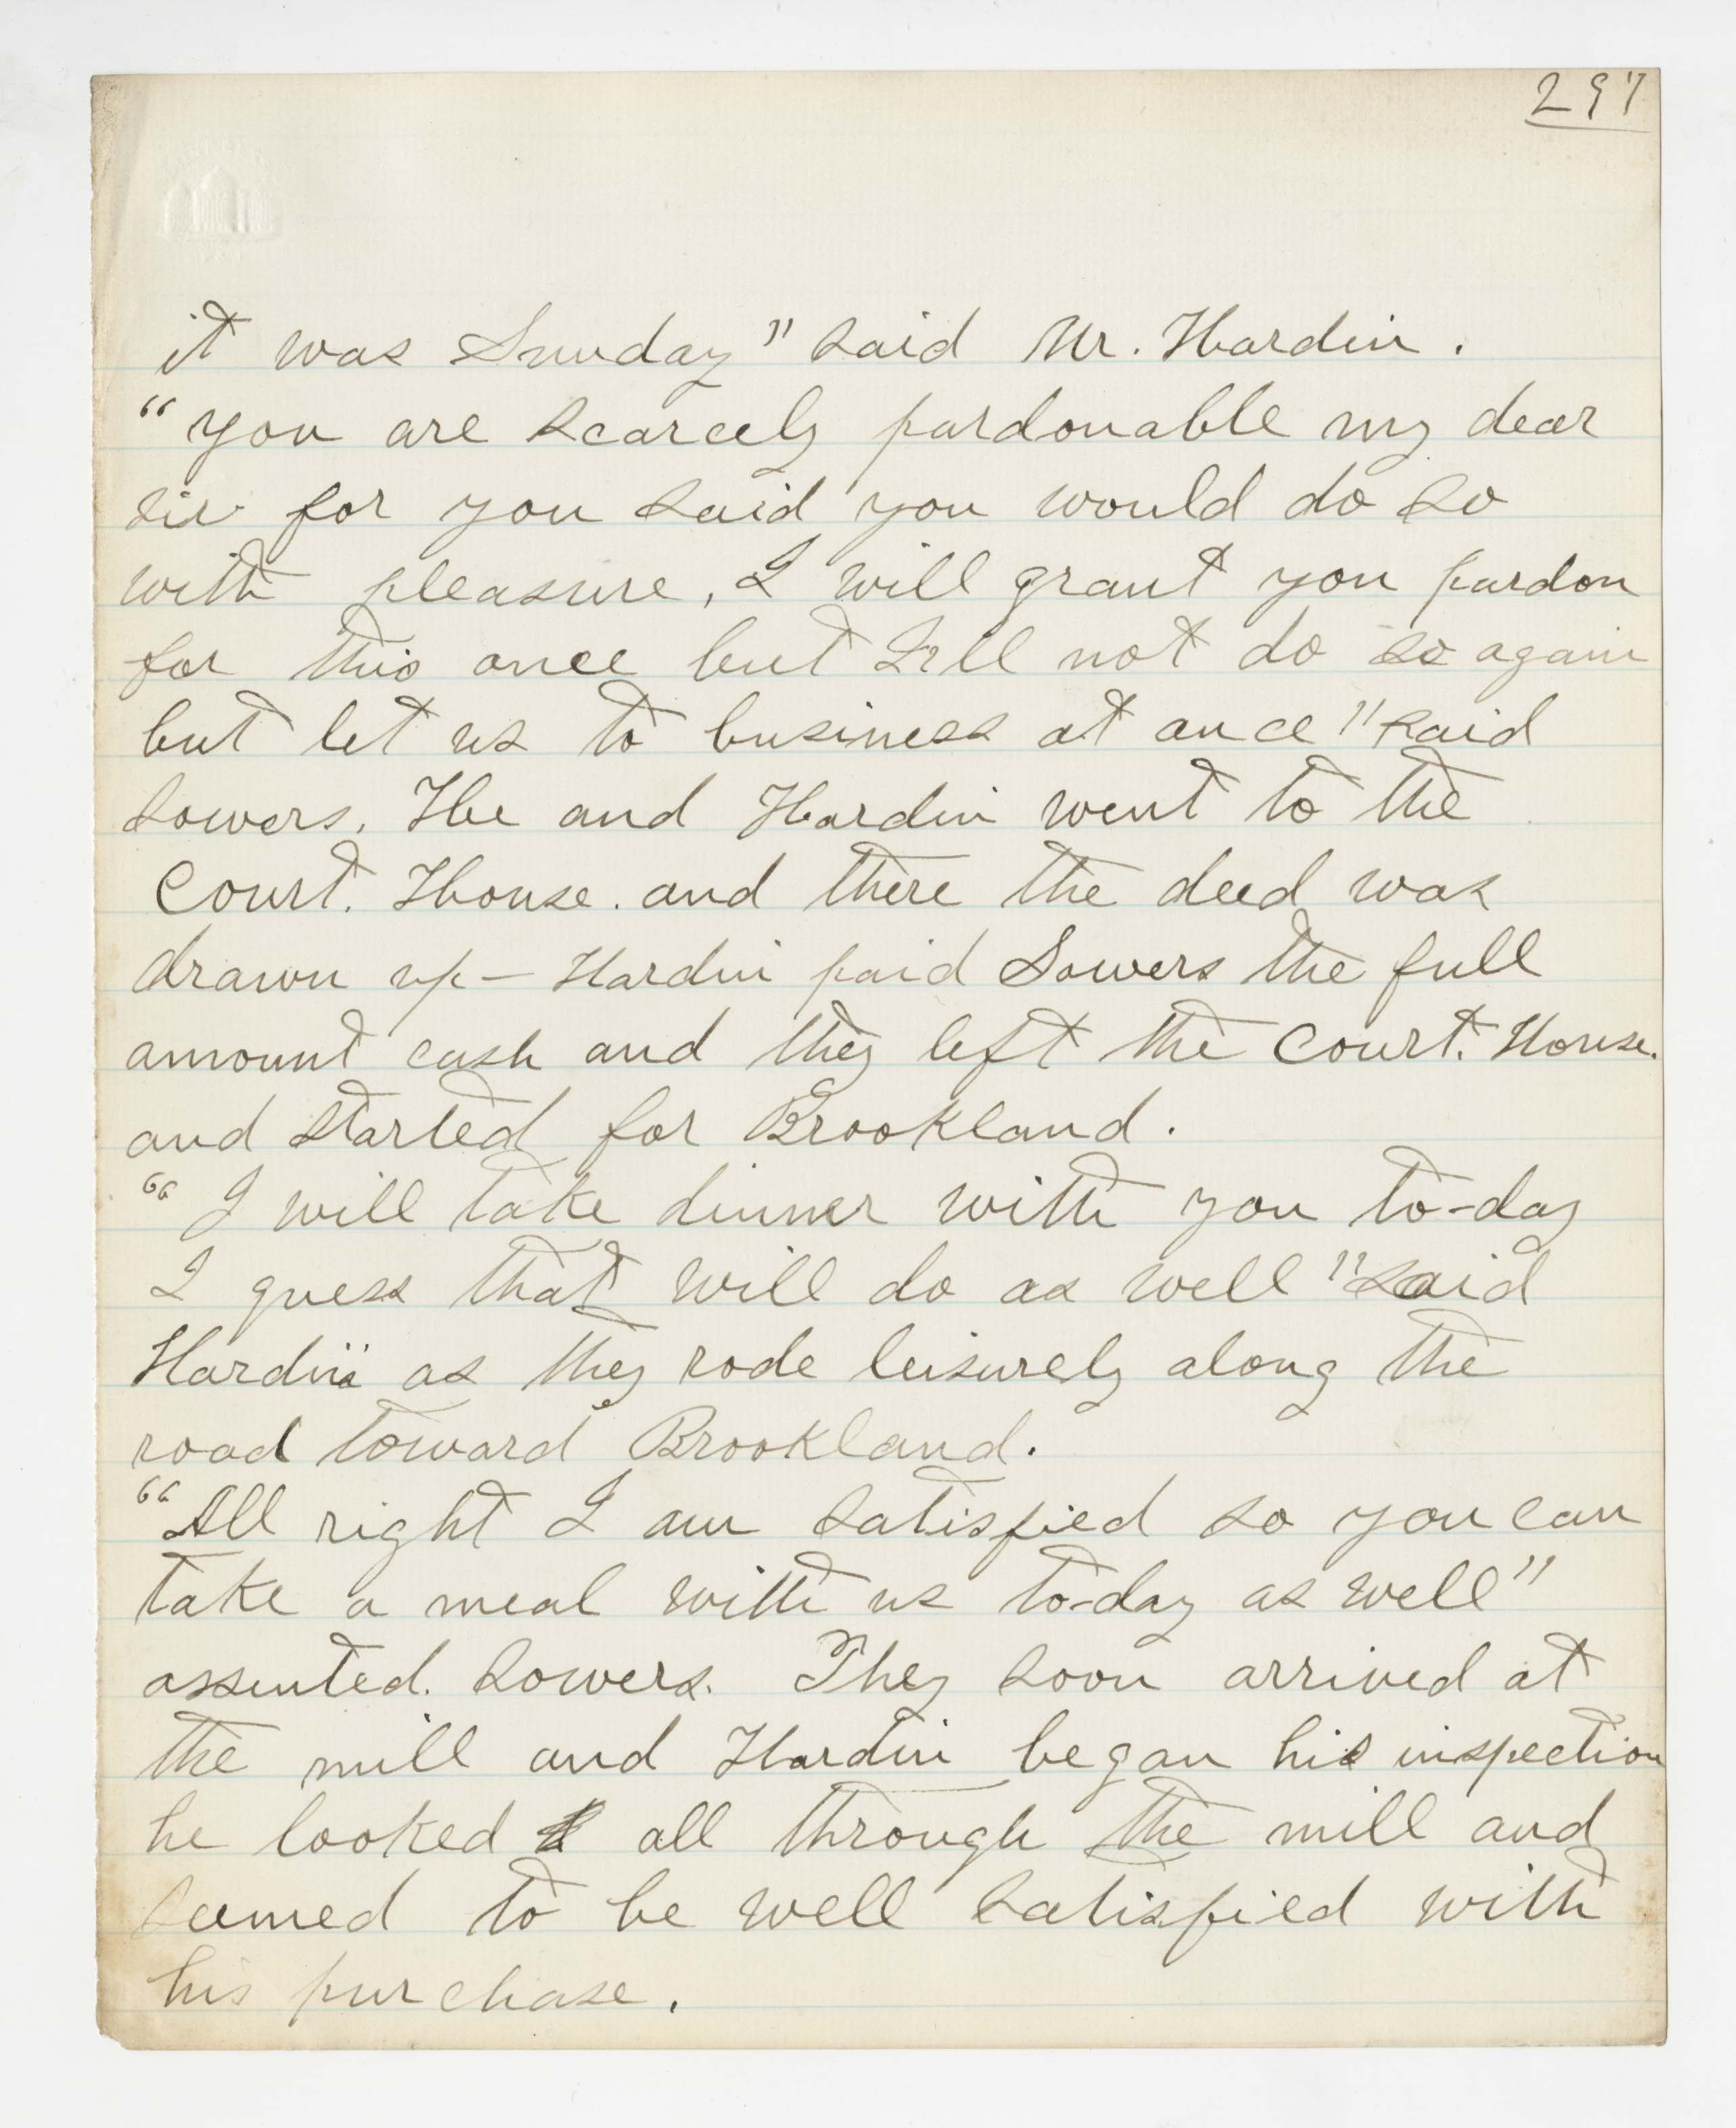 297
it was Sunday" said Mr. Hardin.
"you are scarcely pardonable my dear
sir for you said you would do so
with pleasure, I will grant you pardon
for this once but I'll not do so again
but let us to business at once" said
Sowers. He and Hardin went to the
Court. House. and there the deed was
drawn up – Hardin paid Sowers the full
amount cash and they left the Court. House.
and started for Brookland.
"I will take dinner with you to-day
I guess that will do as well" said
Hardin as they rode leisurely along the
road toward Brookland.
"All right I am satisfied so you can
take a meal with us to-day as well"
assented. Sowers. They soon arrived at
the mill and Hardin began his inspection
he looked all through the mill and
seemed to be well satisfied with
his purchase.